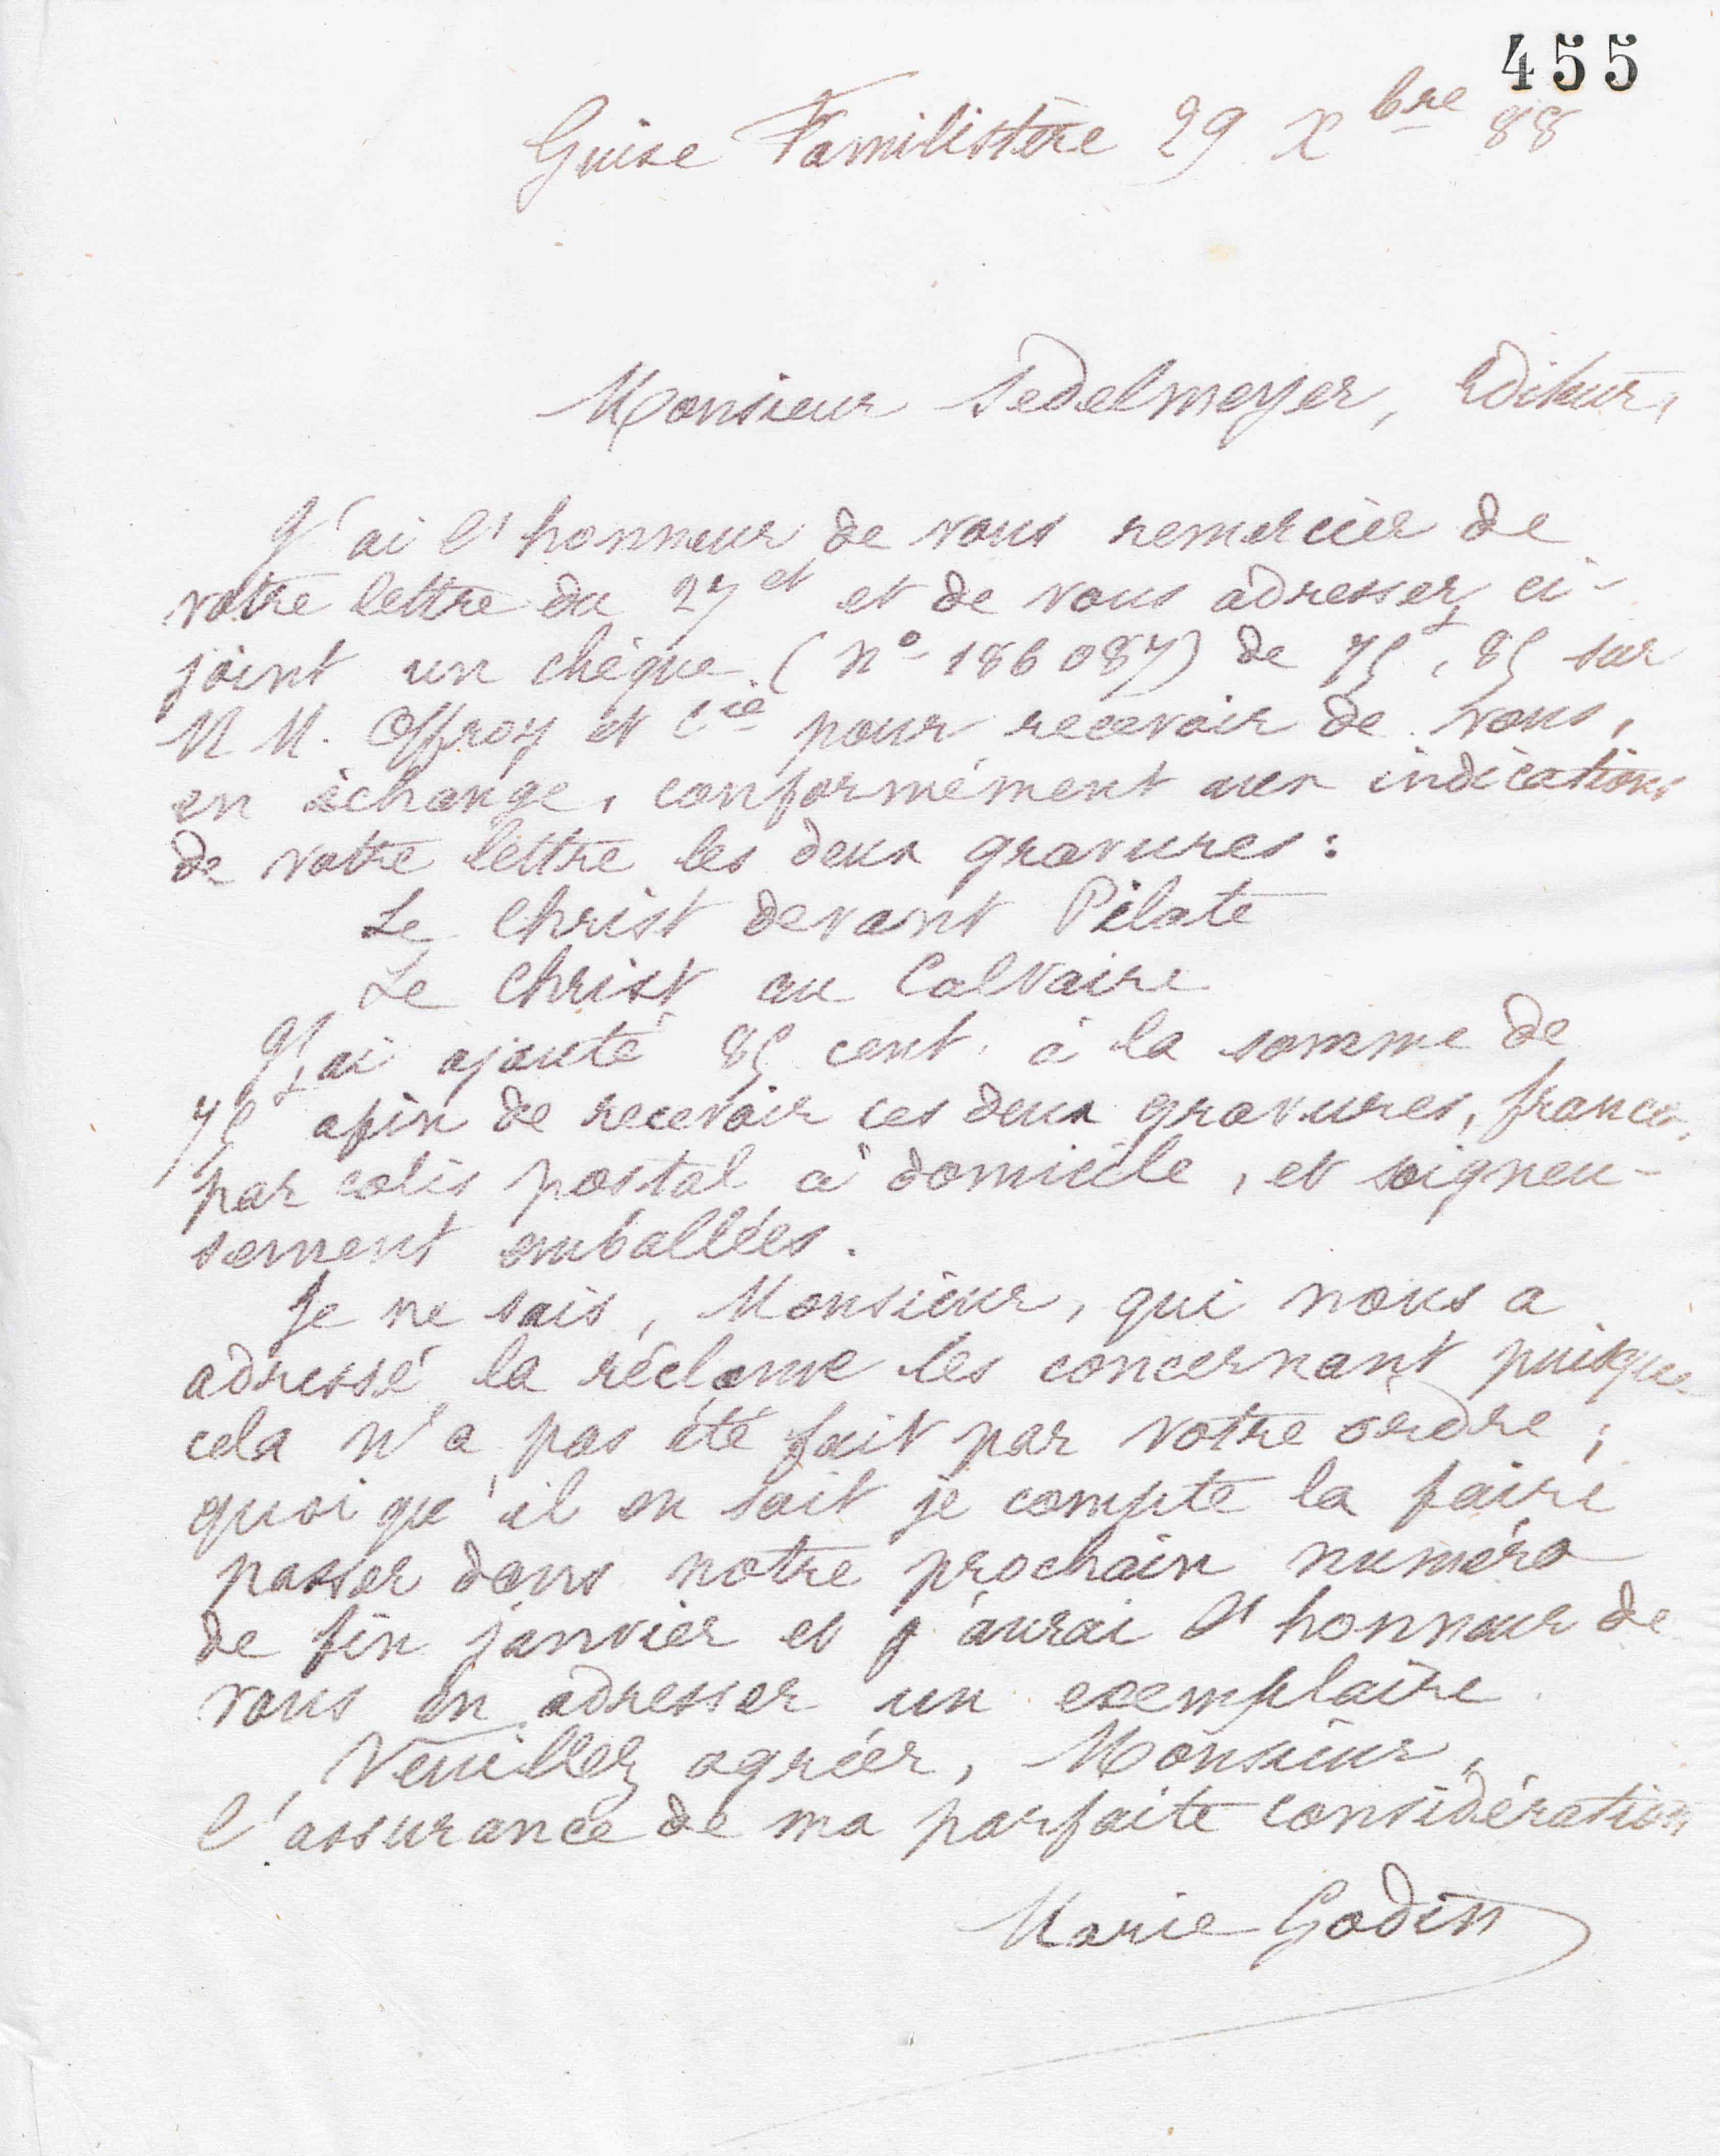 455
Guise Familistère 29 Xbre 88
Monsieur Sedelmeyer, Editeur,
J'ai l'honneur de vous remercier de
votre lettre du 27 ct et de vous adresser ci-
joint un chèque (n° 186 087) de 75f,85 sur
M M. Offroy et Cie pour recevoir de vous,
en échange, conformément aux indications
de votre lettre les deux gravures :
Le Christ devant Pilate
Le Christ au Calvaire
J'ai ajouté 85 cent. à la somme de
75f afin de recevoir ces deux gravures, franco,
par colis postal à domicile, et soigneu-
sement emballées.
Je ne sais, Monsieur, qui nous a
adressé la réclame les concernant puisque
cela n'a pas été fait par votre ordre ;
quoi qu'il en soit je compte la faire
passer dans notre prochain numéro
de fin janvier et j'aurai l'honneur de
vous en adresser un exemplaire.
Veuillez agréer, Monsieur,
l'assurance de ma parfaite considération
Marie Godin